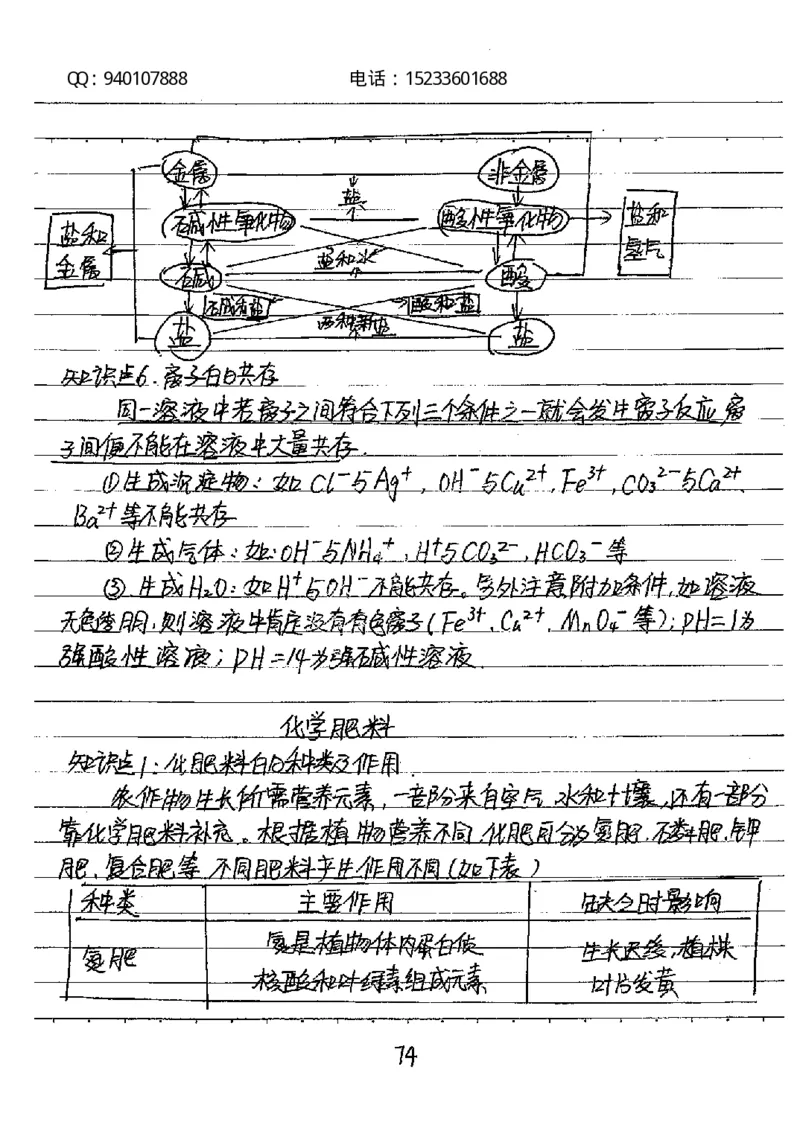 QQ：940107888 电话：15233601688
金属 非金属
盐
碱性氧化物 酸性氧化物 盐和氢气
盐和金属
盐和水
碱 酸
碱和盐 酸和盐
两种新盐
盐 盐
知识点6.离子的共存
同一溶液中若离子之间符合下列三个条件之一就会发生离子反应,离
子间便不能在溶液中大量共存.
①生成沉淀物：如Cl⁻与Ag⁺，OH⁻与Cu²⁺,Fe³⁺,CO₃²⁻与Ca²⁺、
Ba²⁺等不能共存
②生成气体：如:OH⁻与NH₄⁺,H⁺与CO₃²⁻,HCO₃⁻等
③.生成H₂O：如H⁺与OH⁻不能共存。另外注意附加条件,如溶液
无色透明,则溶液中肯定没有有色离子(Fe³⁺、Cu²⁺、MnO₄⁻等)；pH=1为
强酸性溶液；pH=14为强碱性溶液.
化学肥料
知识点1：化肥料的种类及作用
农作物生长所需营养元素,一部分来自空气、水和土壤,还有一部分
靠化学肥料补充。根据植物营养不同,化肥可分为氮肥、磷肥、钾
肥、复合肥等,不同肥料产生作用不同(如下表)
种类 主要作用 缺乏时影响
氮肥 氮是植物体内蛋白质 生长迟缓,植株
核酸和叶绿素组成元素 叶片发黄
74